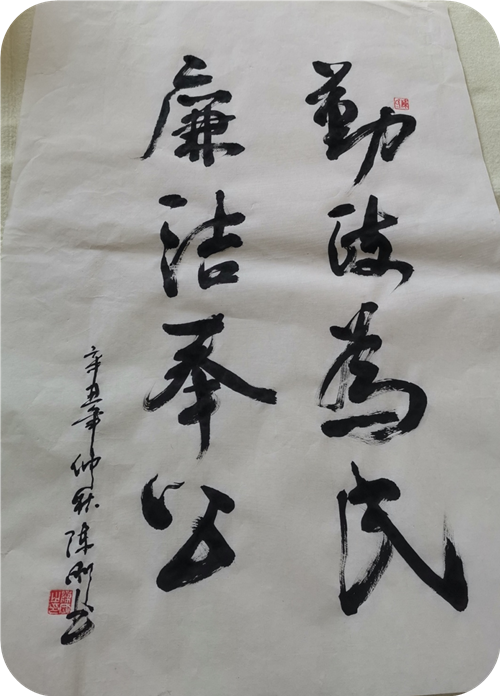 勤政為民
廉洁奉公
辛丑年仲秋陈刚书